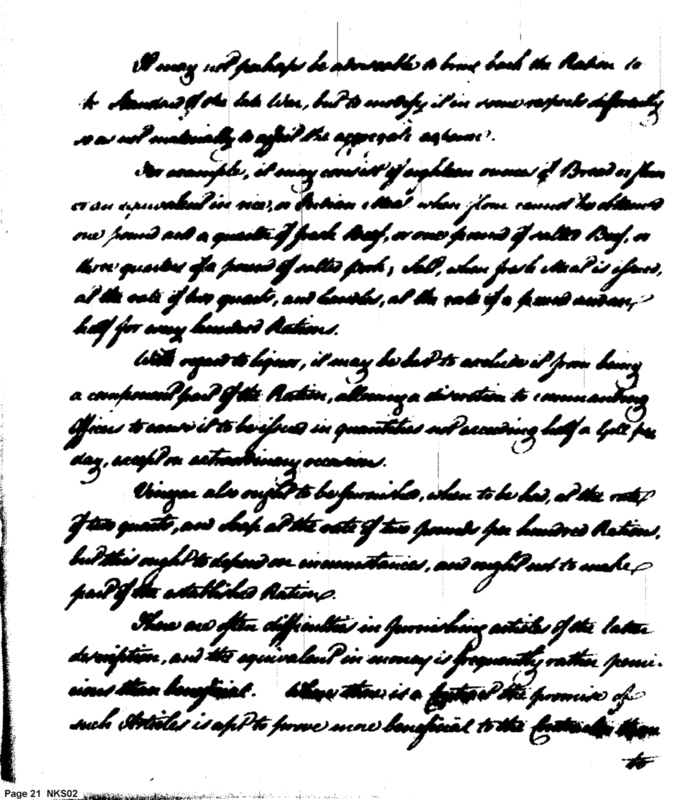 It may not perhaps be adviseable to bring back the Ration to
the Standard of the late War, but to modify it in some respects differently
so as not materially to affect the aggregate expence.
For example, it may consist of eighteen ounces of Bread or flour
or an equivalent in rice, or Indian Meal when flour cannot be obtained
one pound and a quarter of fresh Beef, or one pound of salted Beef, or
three quarters of a pound of salted pork; Salt, when fresh Meat is issued,
at the rate of two quarts, and Candles, at the rate of a pound and an
half for every hundred Rations.
With regard to liquor, it may be best to exclude it from being
a component part of the Ration, allowing a discretion to commanding
Officers to cause it to be issued in quantities not exceeding half a Gill per
day, except on extraordinary occasions.
Vinegar also ought to be furnished, when to be had, at the rate
of two quarts, and Soap at the rate of two pounds per hundred Rations,
but this ought to depend on circumstances, and ought not to make
part of the established Ration.
There are often difficulties in furnishing articles of the latter
description, and the equivalent in money is frequently rather perni-
cious than beneficial. Where there is a Contract the promise of
such Articles is apt to prove more beneficial to the Contractor than
to
Page 21 NKS02